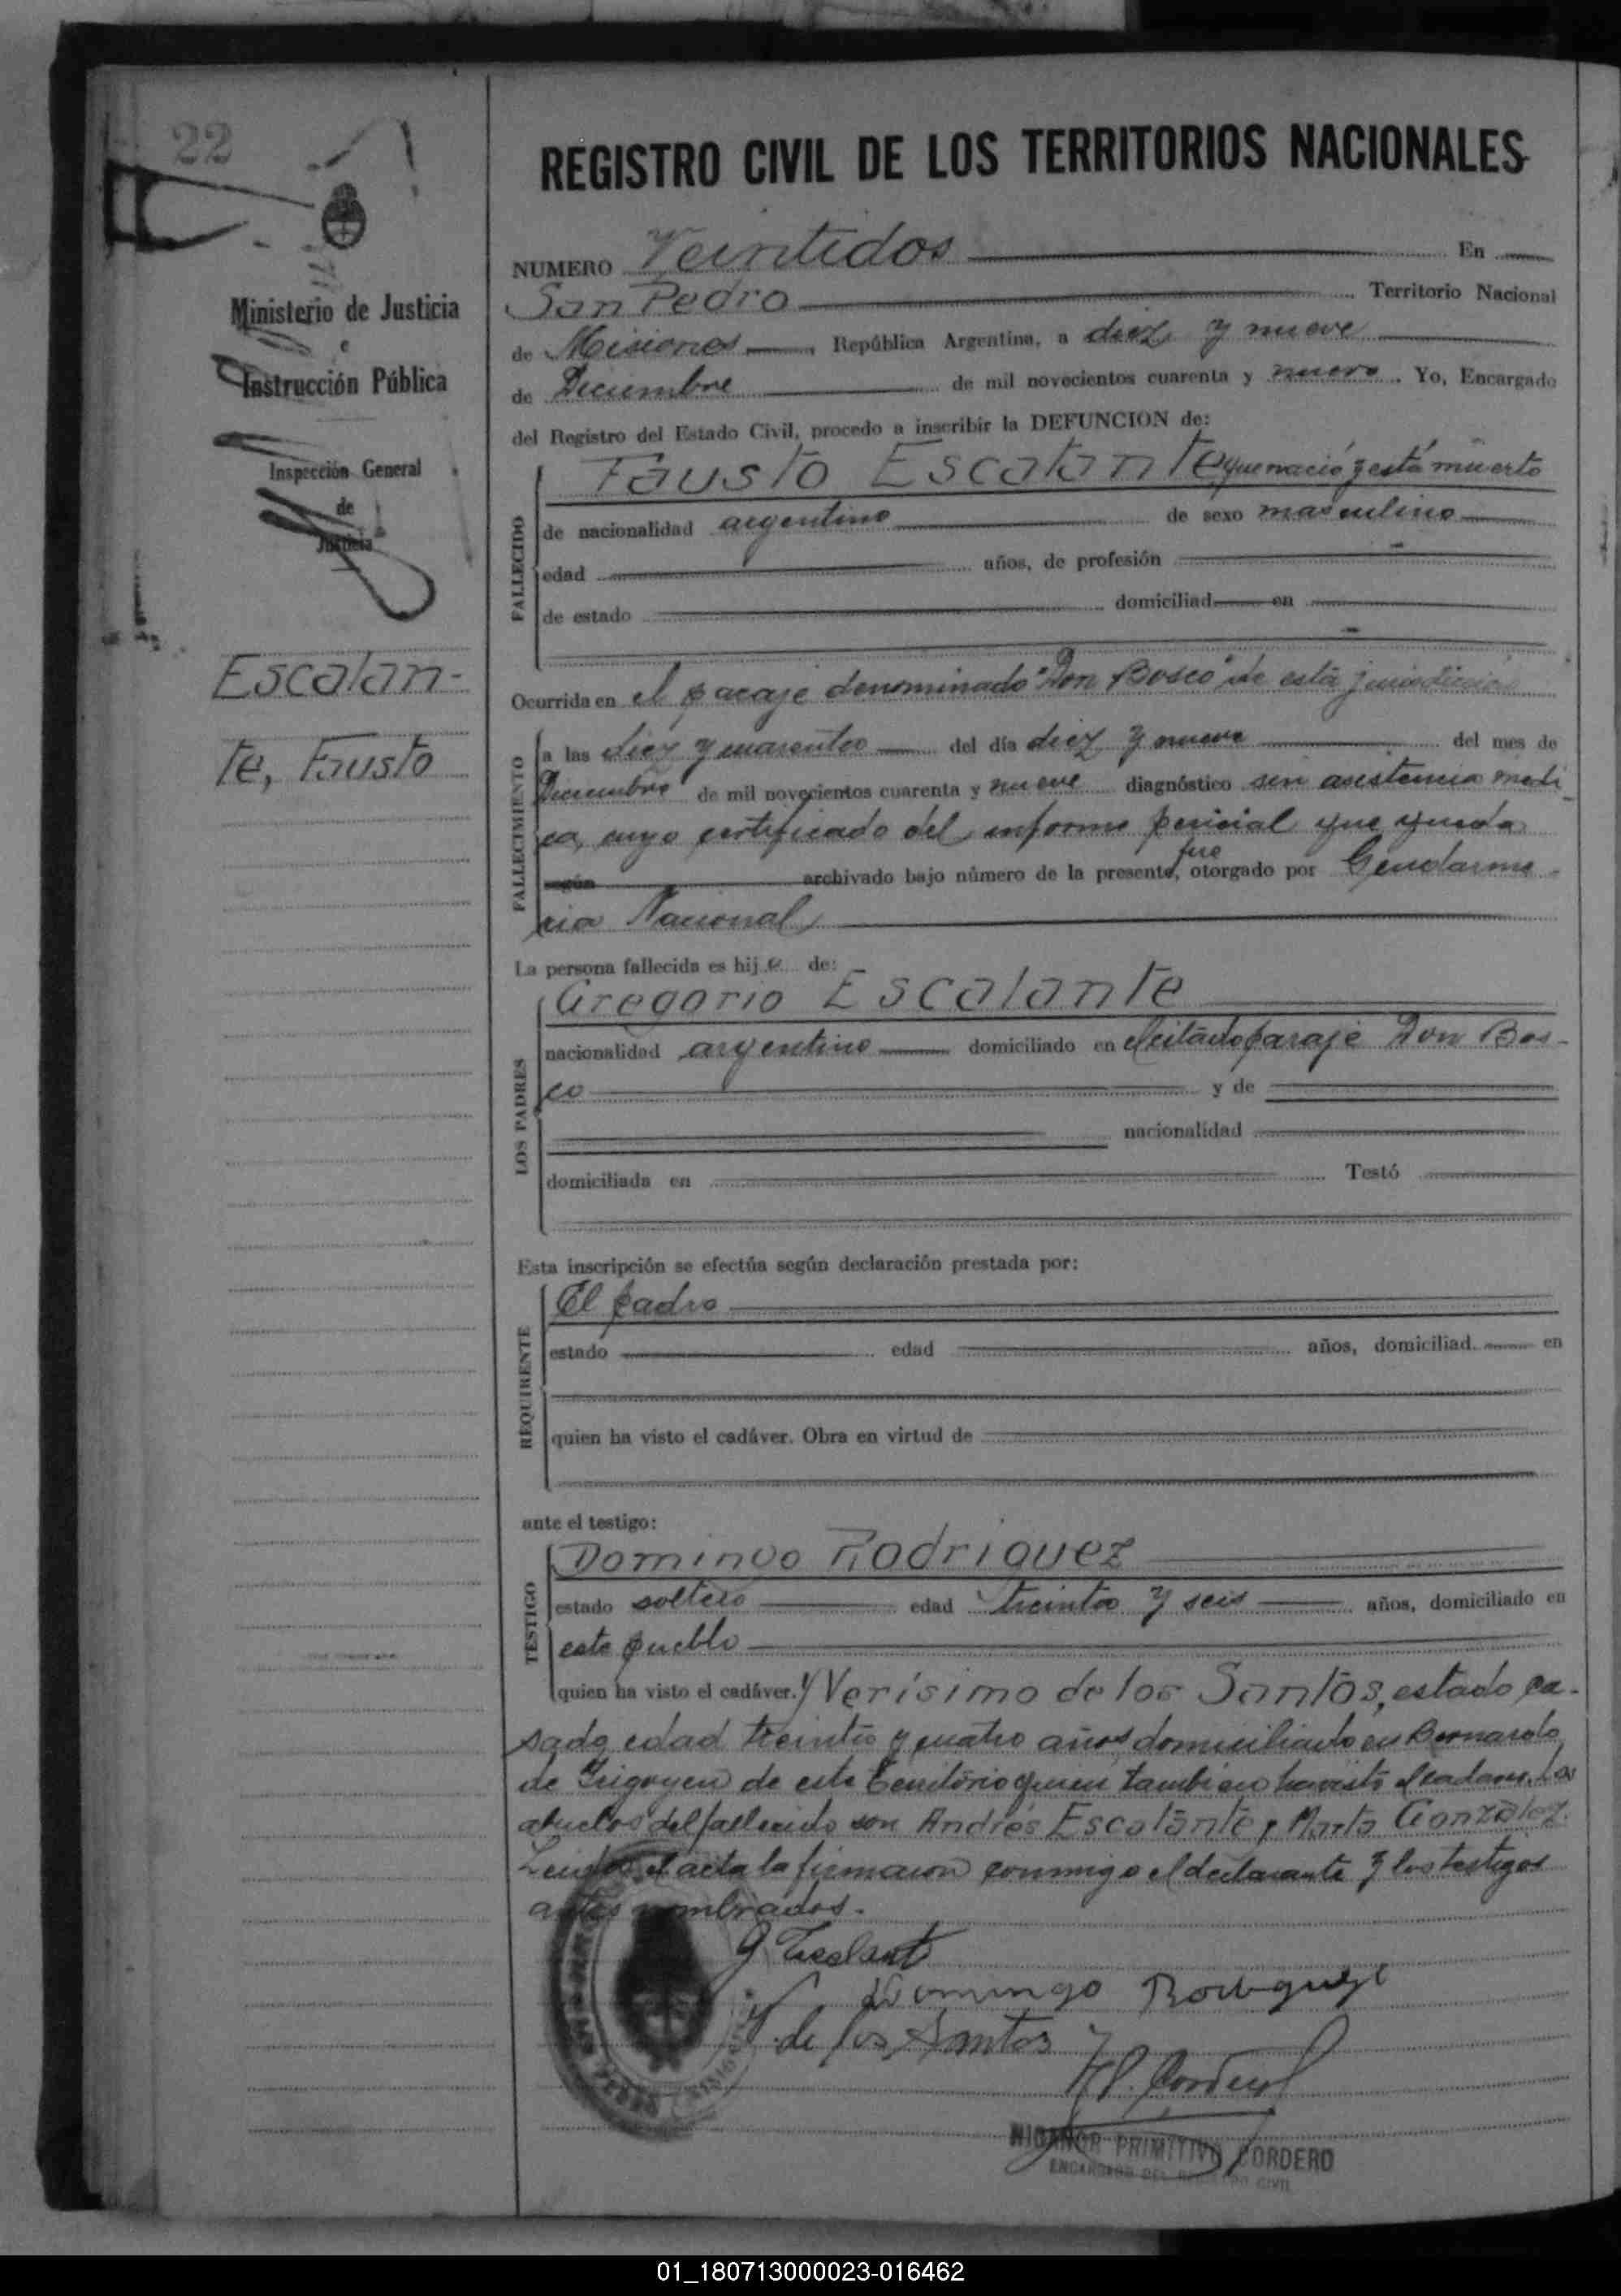 22
Ministerio de Justicia
e
Instrucción Pública
Inspección General
de
Justicia
Escalan-
te, Fausto
REGISTRO CIVIL DE LOS TERRITORIOS NACIONALES
NUMERO Veintidos En
San Pedro Territorio Nacional
de Misiones, República Argentina, a diez y nueve
de Diciembre de mil novecientos cuarenta y nueve. Yo, Encargado
del Registro del Estado Civil, procedo a inscribir la DEFUNCION de:
Fausto Escalante que nació y está muerto
FALLECIDO
de nacionalidad argentino de sexo masculino
edad años, de profesión
de estado domiciliad en
Ocurrida en el paraje denominado "Don Bosco" de esta jurisdicción
FALLECIMIENTO
a las diez y cuarenta del día diez y nueve del mes de
Diciembre de mil novecientos cuarenta y nueve diagnóstico sin asistencia médi
ca, cuyo certificado del informe pericial que queda
fue
según archivado bajo número de la presente, otorgado por Gendarme-
ria Nacional
La persona fallecida es hijo de:
LOS PADRES
Gregorio Escalante
nacionalidad argentino domiciliado en el citado paraje Don Bos-
co y de
nacionalidad
domiciliada en Testó
Esta inscripción se efectúa según declaración prestada por:
REQUIRENTE
El padre
estado edad años, domiciliad. en
quien ha visto el cadáver. Obra en virtud de
ante el testigo:
TESTIGO
Domingo Rodriguez
estado soltero edad treinta y seis años, domiciliado en
este pueblo
quien ha visto el cadáver. y Verísimo de los Santos, estado ca-
sado, edad treinta y cuatro años domiciliado en Bernardo
de Irigoyen de este territorio quien también ha visto el cadaver. Los
abuelos del fallecido son Andrés Escalante y Marta González.
Leida el acta la firmaron conmigo el declarante y los testigos
antes nombrados.-
G Escalante
Domingo Rodriguez
V. de los Santos
N.P. Cordero
NICANOR PRIMITIVO CORDERO
ENCARGADO DEL REGISTRO CIVIL
01_180713000023-016462